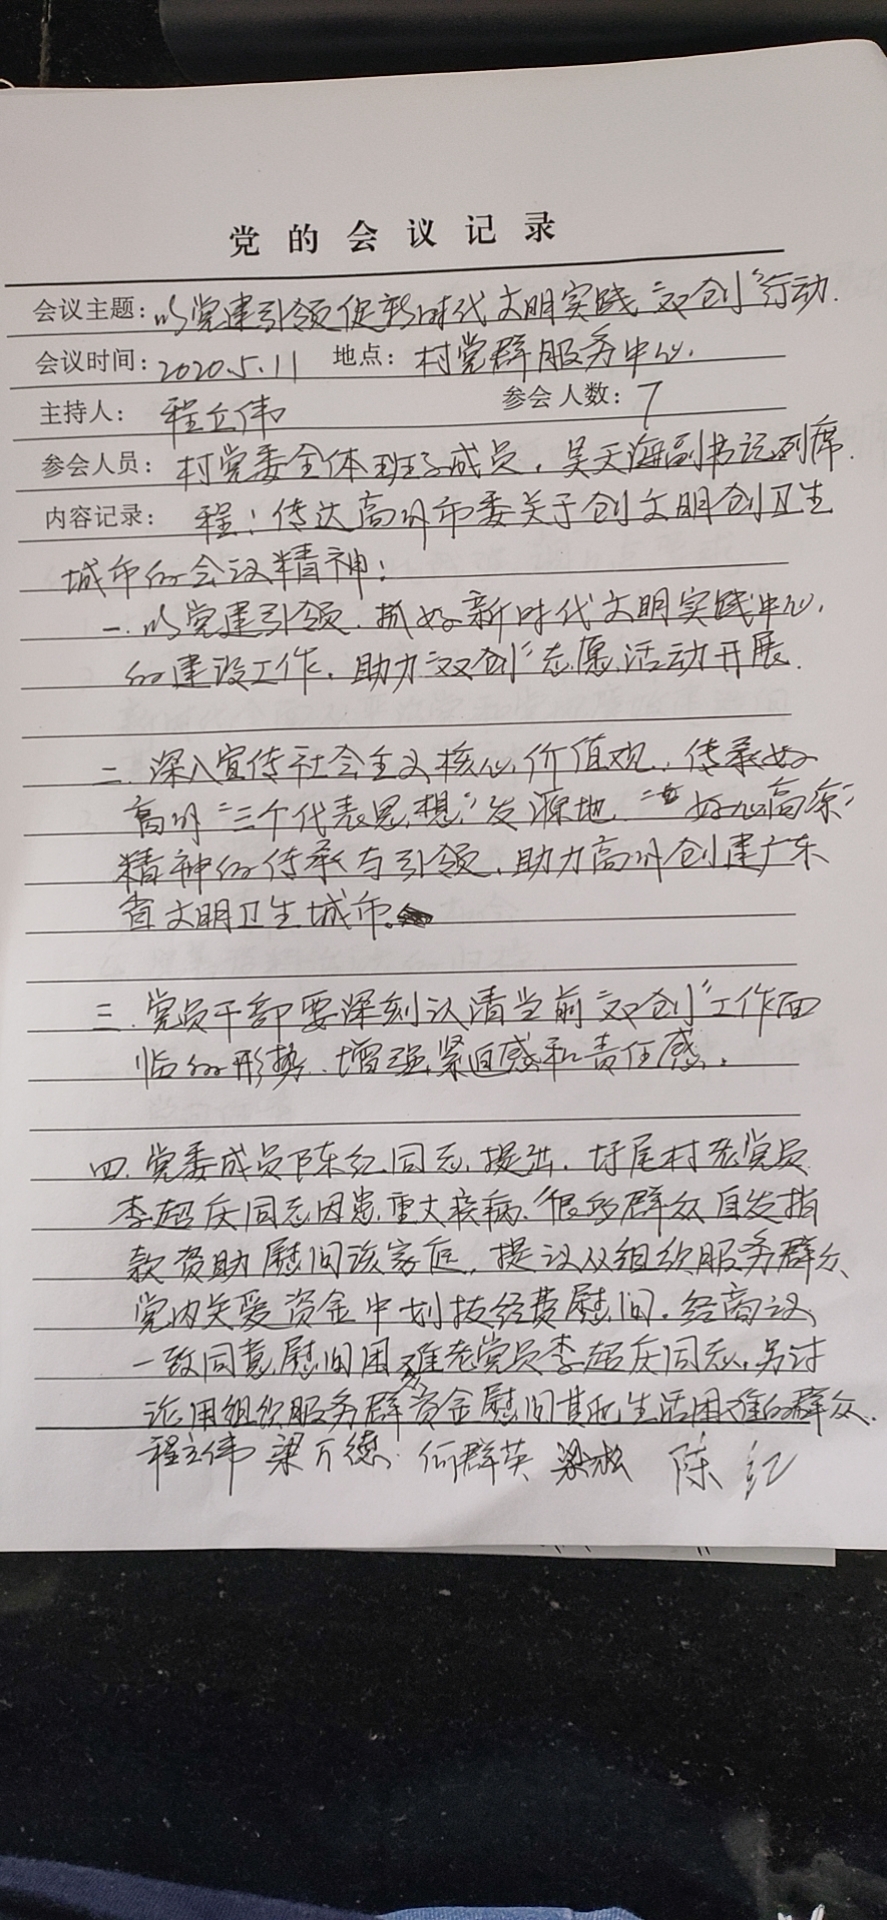 党的会议记录
会议主题：以党建引领促新时代文明实践“双创”行动.
会议时间：2020.5.11 地点：村党群服务中心.
主持人：程立伟 参会人数：7
参会人员：村党委全体班子成员，吴天海副书记列席.
内容记录：程：传达高州市委关于创文明创卫生
城市的会议精神：
一.以党建引领.抓好新时代文明实践中心,
的建设工作.助力“双创”志愿活动开展.
二.深入宣传社会主义核心价值观,传承好
高州“三个代表思想”发源地“好心高凉”
精神的传承与引领,助力高州创建广东
省文明卫生城市.
三.党员干部要深刻认清当前“双创”工作面
临的形势.增强紧迫感和责任感.
四.党委成员陈红同志提出.圩尾村老党员
李超庆同志因患重大疾病.很多群众自发捐
款资助慰问该家庭,提议从组织服务群众、
党内关爱资金中划拨经费慰问.经商议,
一致同意慰问困难老党员李超庆同志,另讨
论用组织服务群众资金慰问其他生活困难的群众.
程立伟 梁万德 何群英 梁松 陈红